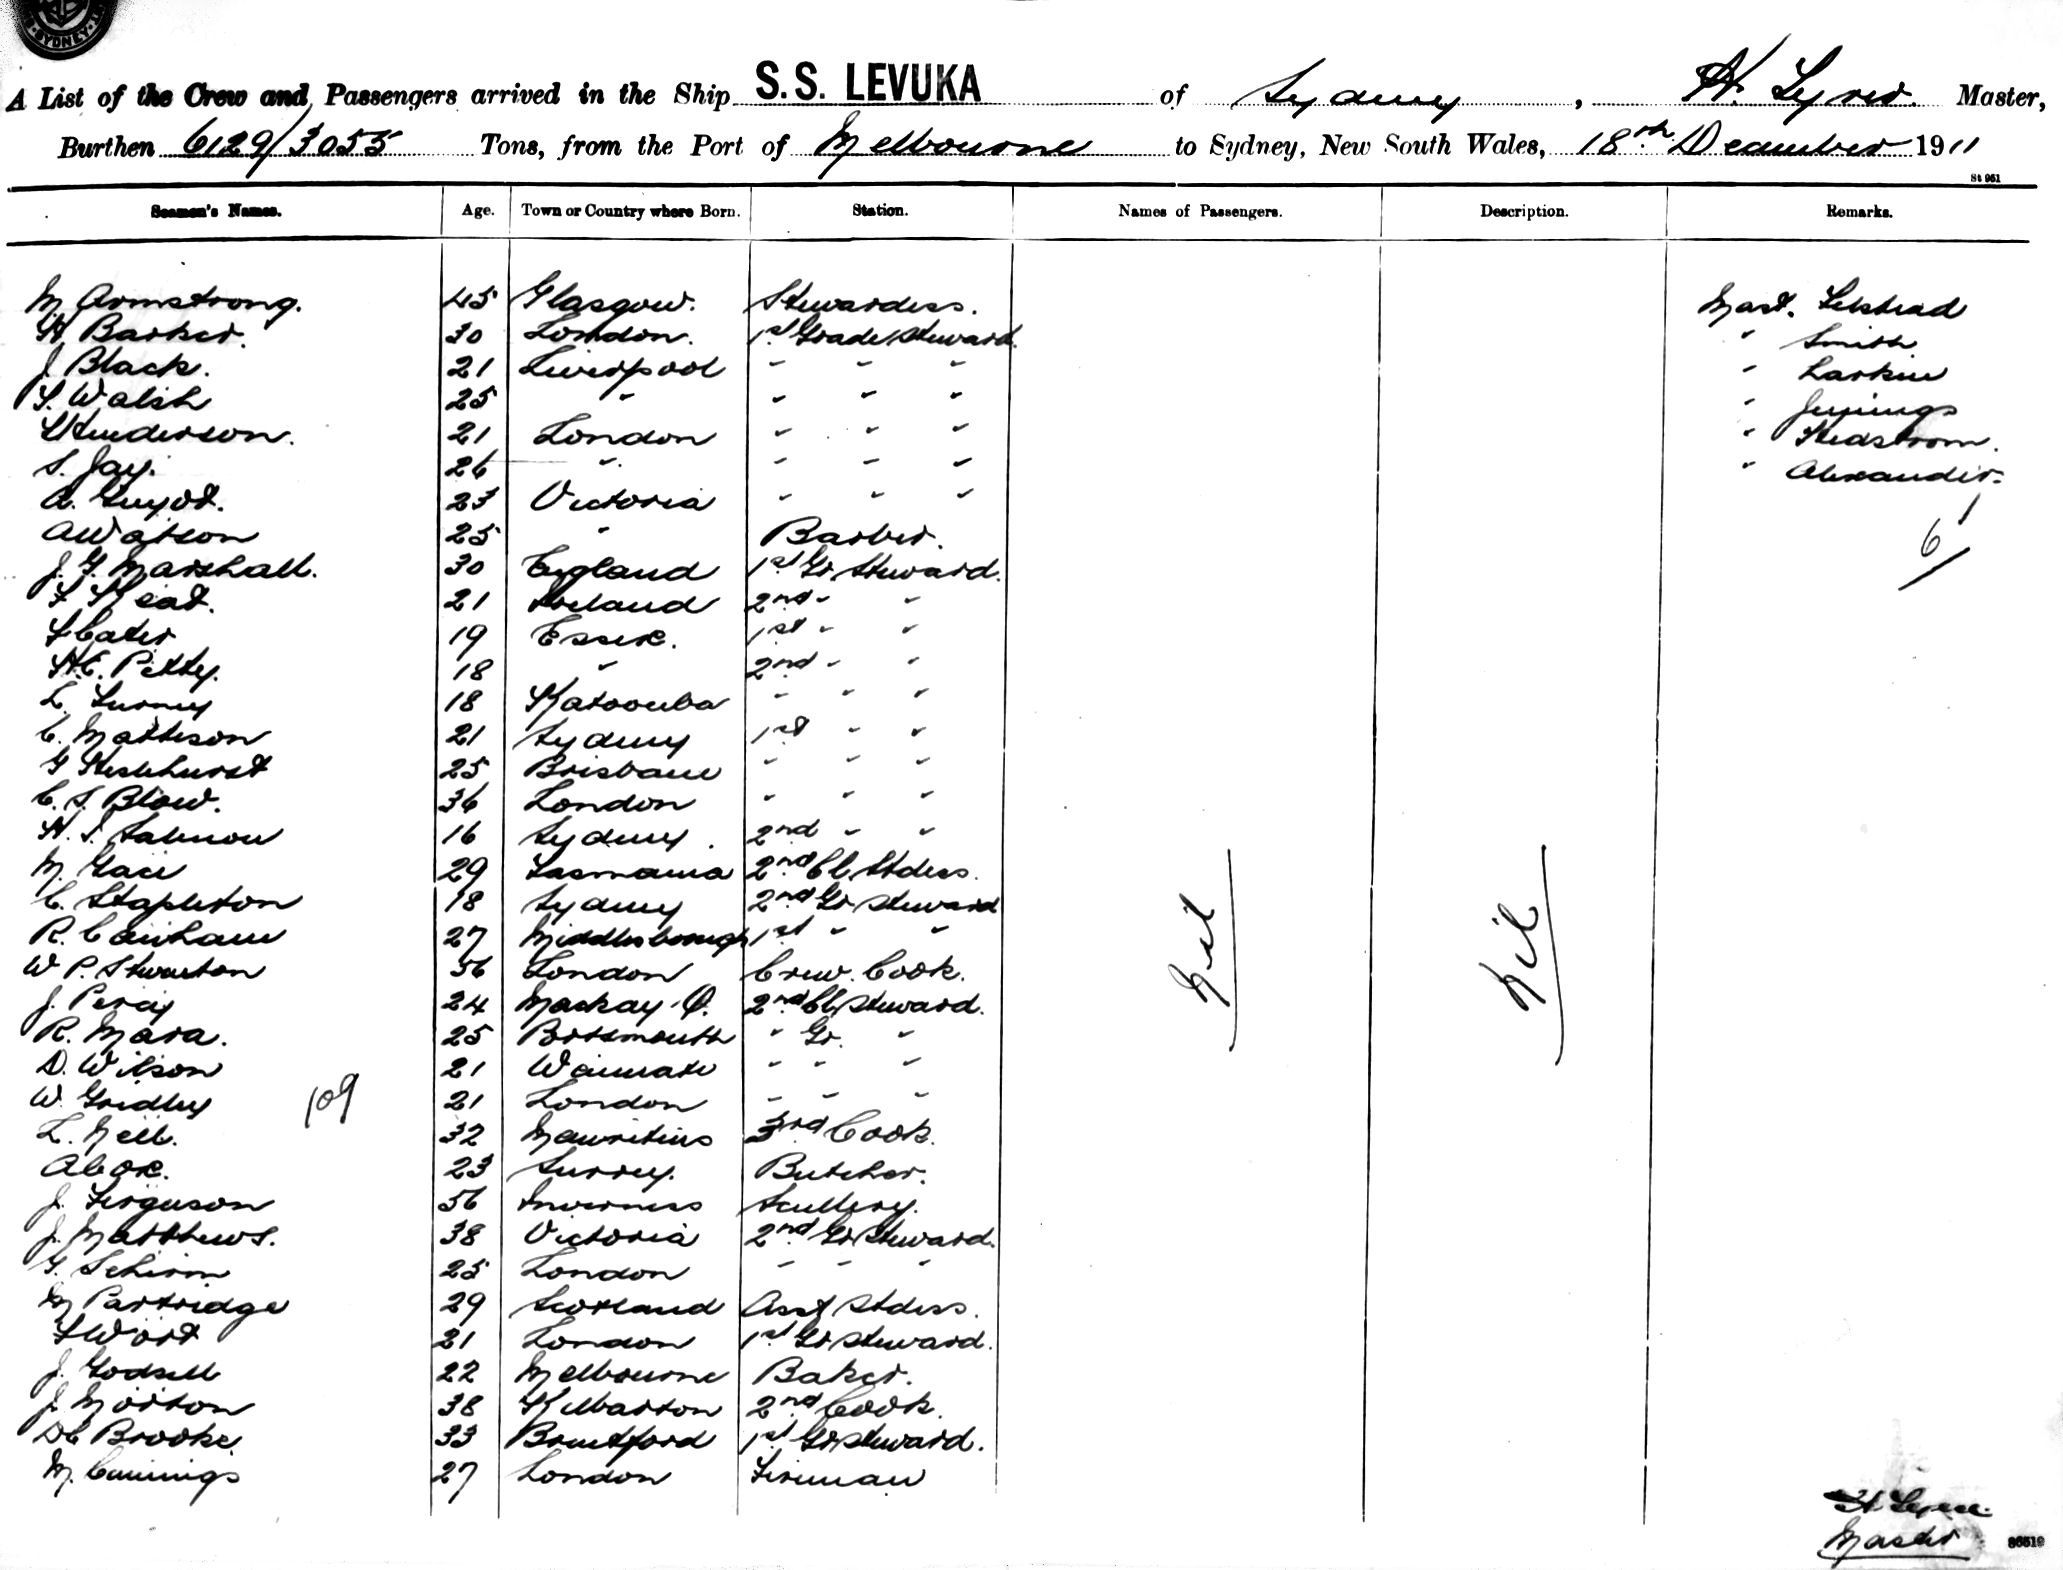 SYDNEY
A List of the Crew and Passengers arrived in the Ship S.S. LEVUKA of Sydney, H. Master,
Burthen 6129/3055 Tons, from the Port of Melbourne to Sydney, New South Wales, 18th December 1911
St 961
Seamen's Names. Age. Town or Country where Born. Station. Names of Passengers. Description. Remarks.
M Armstrong. 45 Glasgow. Stewardess. Mast.
H Barker. 30 London. 1st Grade Steward. " Smith
J Black. 21 Liverpool " " " " Larkin
F. Walsh 25 " " " " " Jennings
Henderson. 21 London " " " " Hedstrom.
S. Jay. 26 " " " " " Alexander.
A. Guyot. 23 Victoria " " "
A Watson 25 " Barber. 6
J. G. Marshall. 30 England 1st Gr Steward.
F Keat. 21 Ireland 2nd " "
F Cater 19 Essex. 1st " "
H.E. Pitty. 18 " 2nd " "
L. 18 Katoomba " " "
C. Matteson 21 Sydney 1st " "
G Heshhurst 25 Brisbane " " "
C. S. Blow. 36 London " " "
H. S. Salmon 16 Sydney. 2nd " "
M. 29 Tasmania 2nd Cl Stdess.
C. Stapleton 18 Sydney 2nd Gr Steward
R. Cawham 27 Middlesborough 1st " "
W P. 56 London Crew. Cook.
J. Percy 24 Mackay Q. 2nd Cl Steward.
R. Mara. 25 Portsmouth " Gr. "
D. Wilson 21 Waimate " " "
W. Gridley 109 21 London " " "
L. Nell. 32 Mauritius 3rd Cook.
A Cox. 23 Surrey. Butcher.
J. Ferguson 56 Inverness Scullery.
J. Matthews. 38 Victoria 2nd Gr Steward.
G. Schirm 25 London " " "
M Partridge 29 Scotland Asst Stdess.
F Wort 21 London 1st Gr Steward.
J. Godsell 22 Melbourne Baker.
J. Morton 38 Kilbarton 2nd Cook.
D C Brooke 33 Brentford 1st Gr Steward.
M. Cummings 27 London Fireman
Nil Nil
H
Master
86519